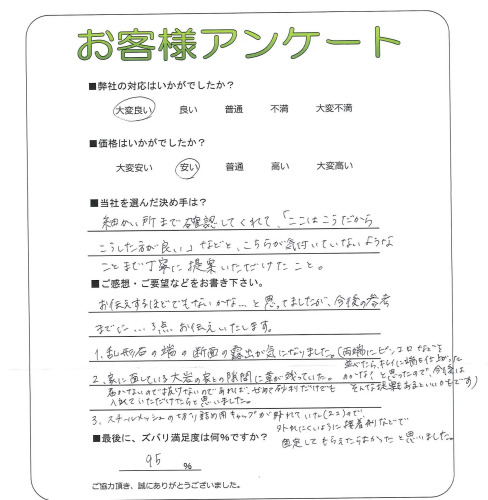 お客様アンケート
■弊社の対応はいかがでしたか?
大変良い 良い 普通 不満 大変不満
■価格はいかがでしたか?
大変安い 安い 普通 高い 大変高い
■当社を選んだ決め手は?
細かい所まで確認してくれて、「ここはこうだから
こうした方が良い」などと、こちらが気付いていないような
ことまで丁寧に提案いただけたこと。
■ご感想・ご要望などをお書き下さい。
お伝えするほどでもないかな…と思ってましたが、今後の参考
までに…3点お伝えいたします。
1. 乱形石の端の断面の露出が気になりました。(両端にピンコロなどを
並べたら、キレイに端を仕切った
のかな?と思ったので、今後は
そんな提案もあるといいかもです)
2. 家に面している大岩の家との隙間に草が残っていた。
岩がないので抜けないのであれば、せめて砂利だけでも
入れていただけたらと思いました。
3. スチールメッシュの切り詰め用キャップが外れていた(2コ)ので、
外れにくいように接着剤などで
固定してもらえたらよかったと思いました。
■最後に、ズバリ満足度は何%ですか?
95 %
ご協力頂き、誠にありがとうございました。